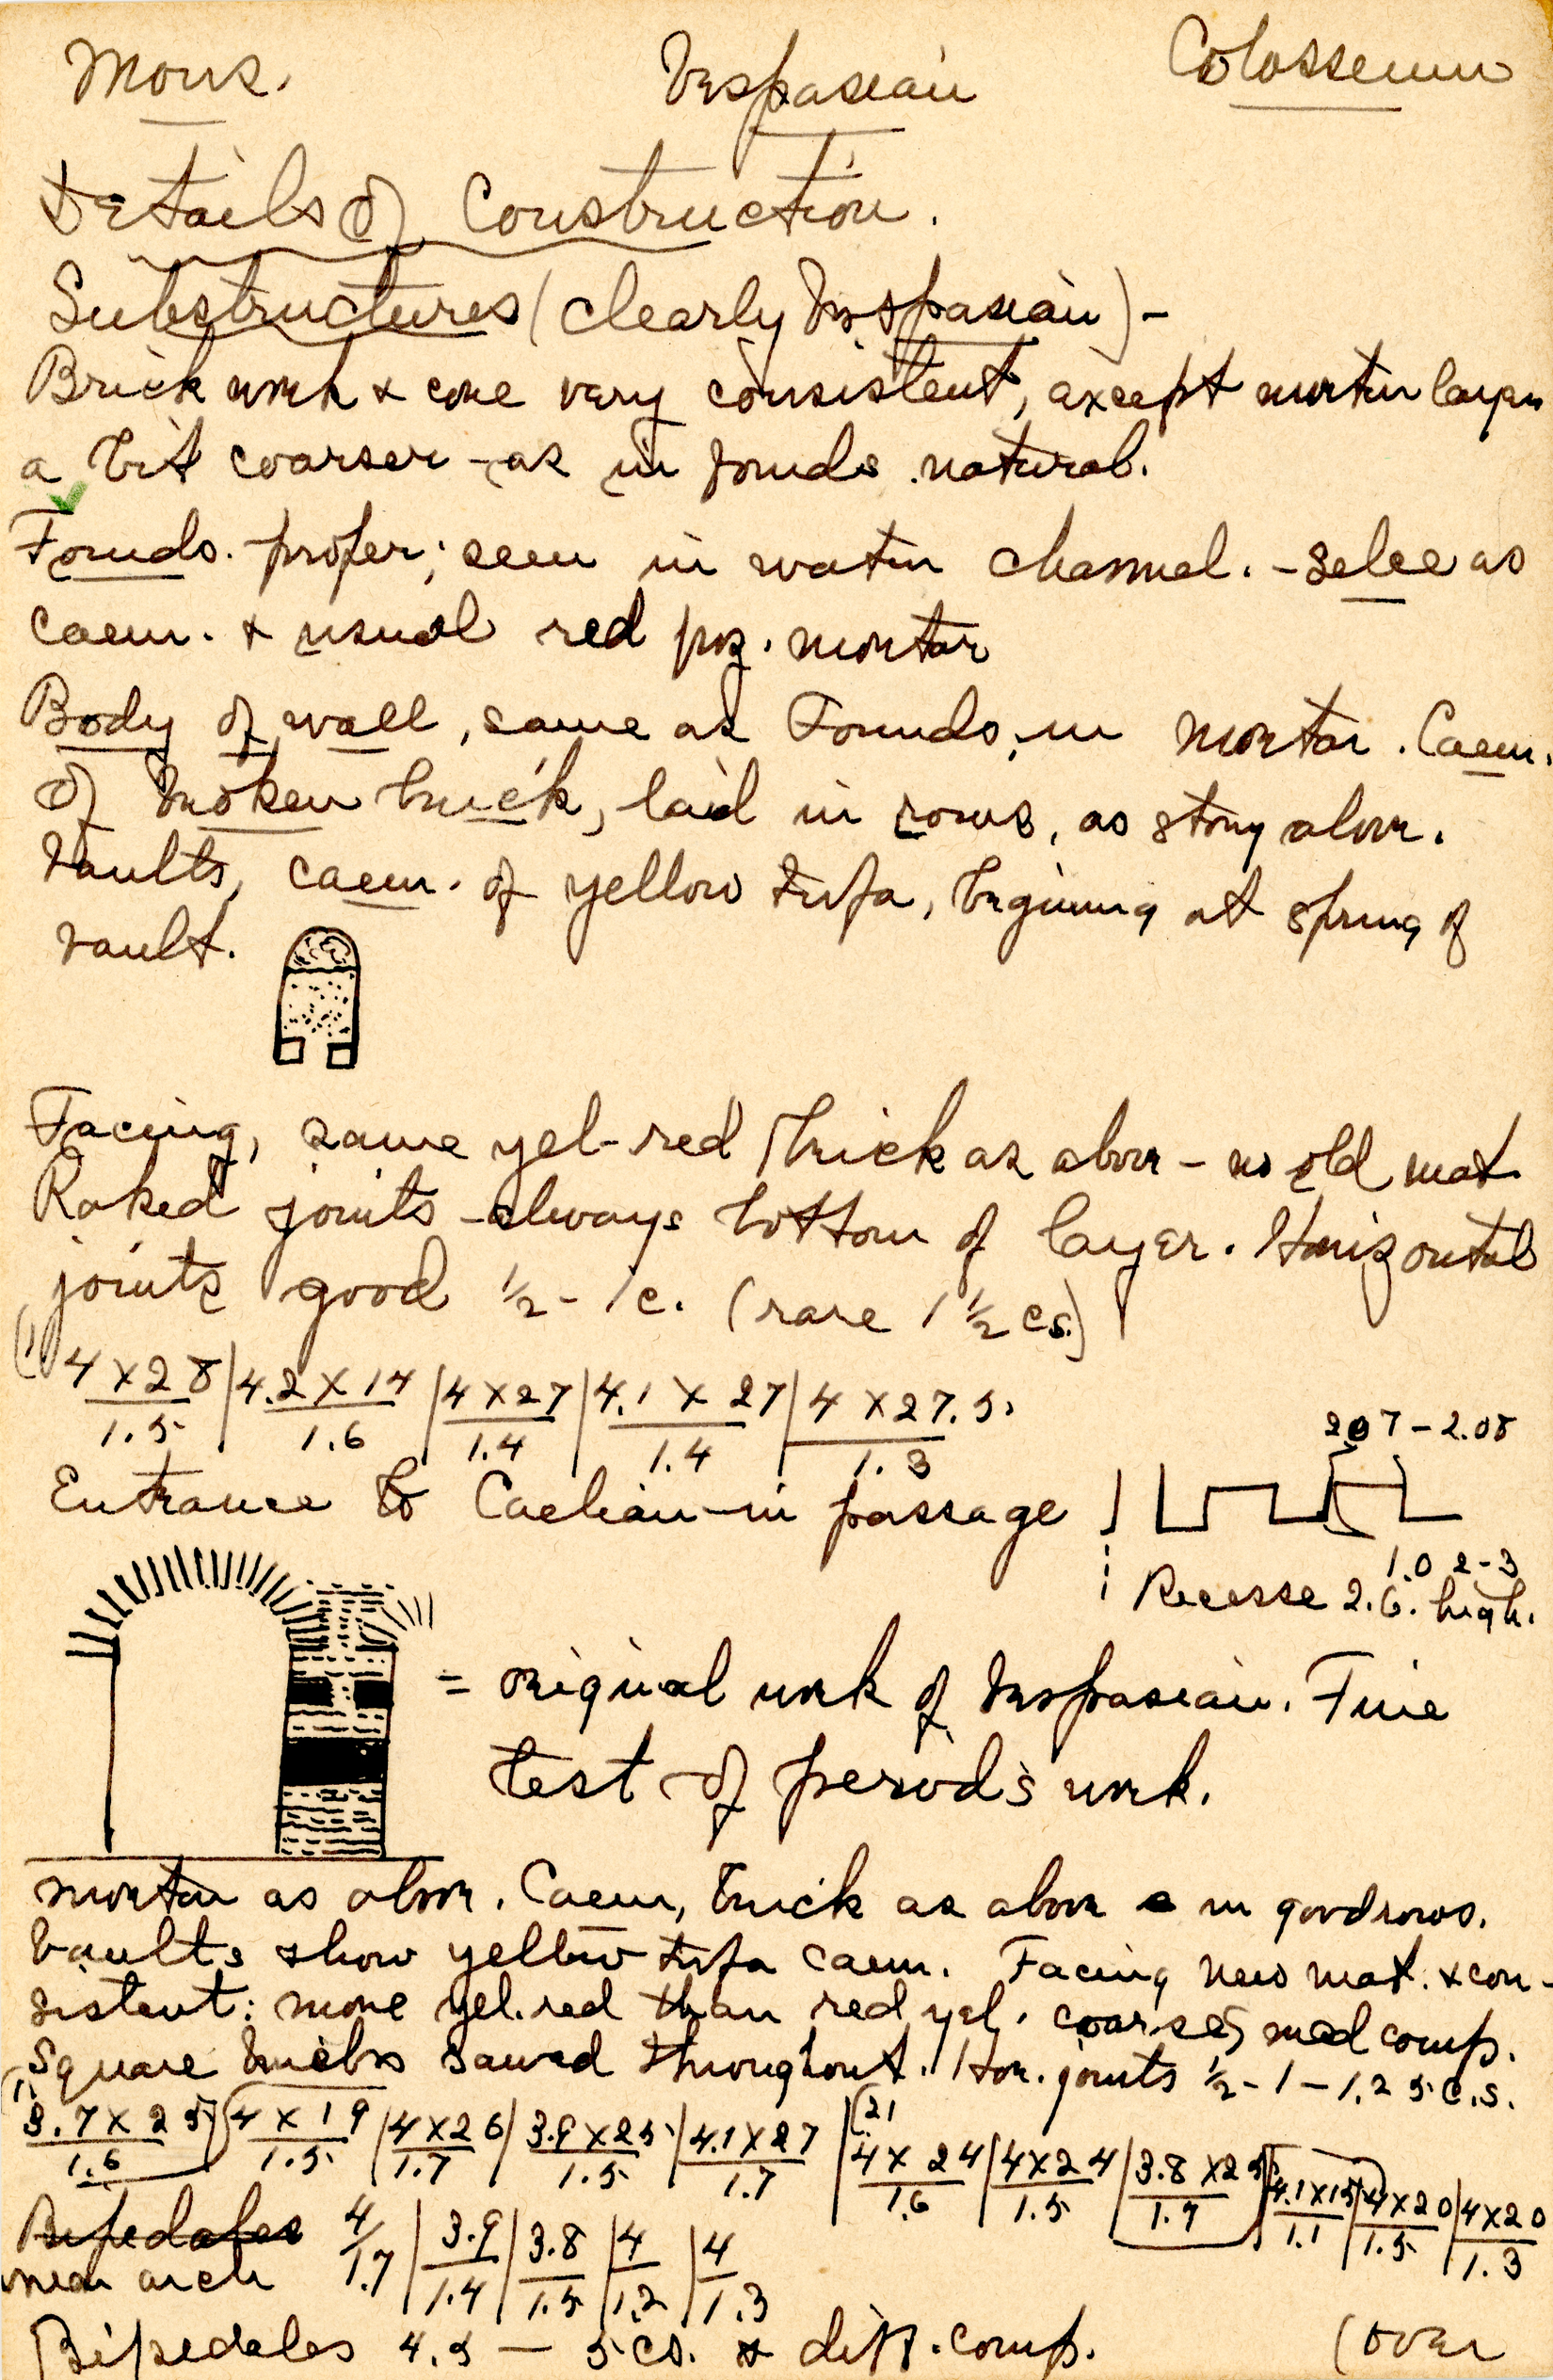 Mons. Vespasian Colosseum
Details of Construction.
Substructures (clearly Vespasian) -
Brick work & core very consistent, except mortar layer
a bit coarser - as in founds. natural.
Founds. proper; seen in water channel. - selce as
caem. & usual red poz. mortar
Body of wall, same as Founds. in mortar. Caem.
of broken brick, laid in rows, as story above.
Vaults, caem. of yellow tufa, begining at spring of
vault.
Facing, same yel-red brick as above - no old mat.
Raked joints - always bottom of layer. Horizontal
joints good ½ - 1 c. (rare 1 ½ cs.)
(1) 4 X 28 / 1.5 | 4.2 X 14 / 1.6 | 4 X 27 / 1.4 | 4.1 X 27 / 1.4 | 4 X 27.5. / 1.3
2.07 - 2.08
Entrance to Caelian - in passage
1.02-3
Recesse 2.6. high.
= original work of Vespasian. Fine
test of period's work.
mortar as above. Caem, brick as above in good rows.
Vaults show yellow tufa caem. Facing new mat. & con-
sistent: more yel. red than red yel. coarse, med comp.
Square bricks sawed throughout. Hor. joints ½ - 1 - 1.25 c.s.
(1) 3.7 X 25 / 1.6 | 4 X 19 / 1.5 | 4 X 26 / 1.7 | 3.9 X 25 / 1.5 | 4.1 X 27 / 1.7 | (2) 4 X 24 / 1.6 | 4 X 24 / 1.5 | 3.8 X 25 / 1.7 | 4.1 X 15 / 1.1 | 4 X 20 / 1.5 | 4 X 20 / 1.3
Bipedales 4 / 1.7 | 3.9 / 1.4 | 3.8 / 1.5 | 4 / 1.2 | 4 / 1.3
near arch
Bipedales 4.5 — 5 cs. & diff. comp. (over